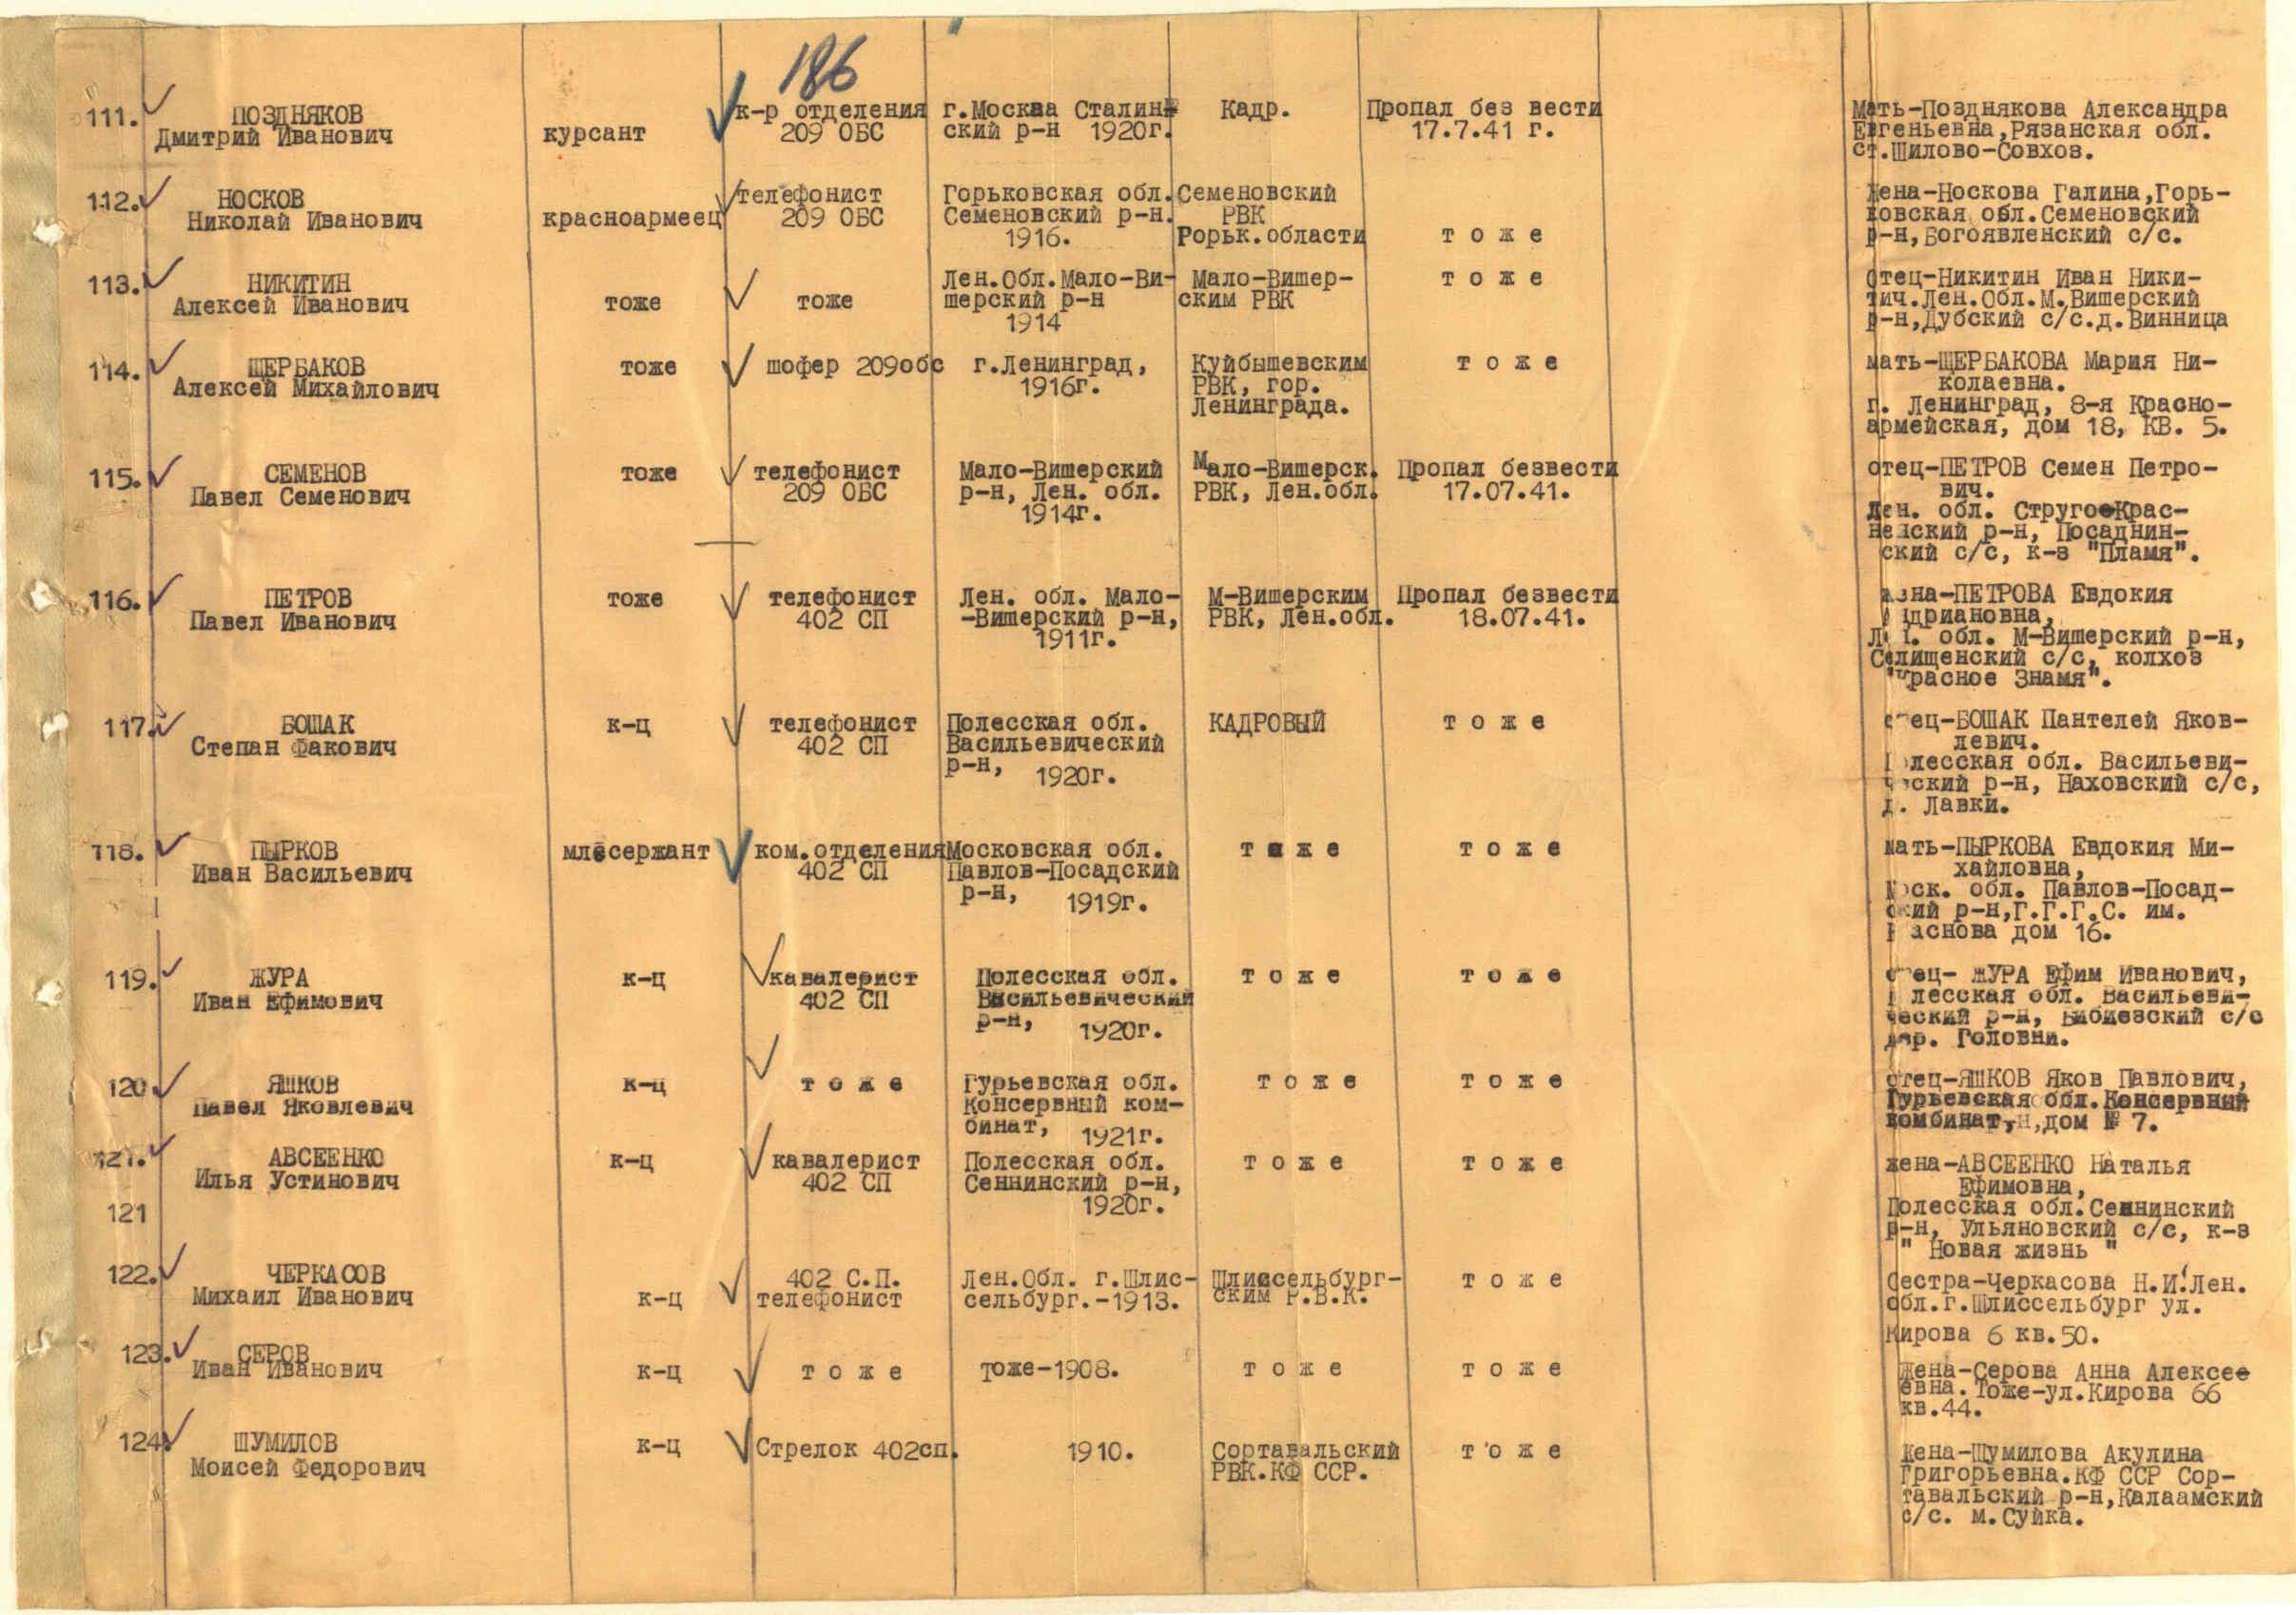 186
111. ПОЗДНЯКОВ
Дмитрий Иванович
курсант
к-р отделения
209 ОБС
г.Москва Сталин-
ский р-н 1920г.
Кадр.
Пропал без вести
17.7.41 г.
Мать-Позднякова Александра
Евгеньевна,Рязанская обл.
ст.Шилово-Совхоз.
112. НОСКОВ
Николай Иванович
красноармеец
телефонист
209 ОБС
Горьковская обл.
Семеновский р-н.
1916.
Семеновский
РВК
Рорьк.области
т о ж е
Жена-Носкова Галина,Горь-
ковская обл.Семеновский
р-н,Богоявленский с/с.
113. НИКИТИН
Алексей Иванович
тоже
тоже
Лен.Обл.Мало-Ви-
шерский р-н
1914
Мало-Вишер-
ским РВК
т о ж е
отец-Никитин Иван Ники-
тич.Лен.Обл.М.Вишерский
р-н,Дубский с/с.д.Винница
114. ЩЕРБАКОВ
Алексей Михайлович
тоже
шофер 209обс
г.Ленинград,
1916г.
Куйбышевским
РВК, гор.
Ленинграда.
т о ж е
мать-ЩЕРБАКОВА Мария Ни-
колаевна.
г. Ленинград, 8-я Красно-
армейская, дом 18, КВ. 5.
115. СЕМЕНОВ
Павел Семенович
тоже
телефонист
209 ОБС
Мало-Вишерский
р-н, Лен. обл.
1914г.
Мало-Вишерск.
РВК, Лен.обл.
Пропал безвести
17.07.41.
отец-ПЕТРОВ Семен Петро-
вич.
Лен. обл. Струго-Крас-
ненский р-н, Посаднин-
ский с/с, к-з "Пламя".
116. ПЕТРОВ
Павел Иванович
тоже
телефонист
402 СП
Лен. обл. Мало-
-Вишерский р-н,
1911г.
М-Вишерским
РВК, Лен.обл.
Пропал безвести
18.07.41.
жена-ПЕТРОВА Евдокия
Андриановна,
Лен. обл. М-Вишерский р-н,
Селищенский с/с, колхоз
"Красное Знамя".
117. БОШАК
Степан Факович
к-ц
телефонист
402 СП
Полесская обл.
Васильевический
р-н, 1920г.
КАДРОВЫЙ
т о ж е
отец-БОШАК Пантелей Яков-
левич.
Полесская обл. Васильеви-
чский р-н, Наховский с/с,
д. Лавки.
118. ПЫРКОВ
Иван Васильевич
мл.сержант
ком.отделения
402 СП
Московская обл.
Павлов-Посадский
р-н, 1919г.
т о ж е
т о ж е
мать-ПЫРКОВА Евдокия Ми-
хайловна,
Моск. обл. Павлов-Посад-
ский р-н,Г.Г.Г.С. им.
дом 16.
119. ЖУРА
Иван Ефимович
к-ц
кавалерист
402 СП
Полесская обл.
Васильевический
р-н, 1920г.
т о ж е
т о ж е
отец- ЖУРА Ефим Иванович,
Полесская обл. Васильеви-
ческий р-н, с/с
дер. Головни.
120 ЯШКОВ
Павел Яковлевич
к-ц
т о ж е
Гурьевская обл.
Консервный ком-
бинат, 1921г.
т о ж е
т о ж е
отец-ЯШКОВ Яков Павлович,
Гурьевская обл.Консервный
комбинат,дом № 7.
121. АВСЕЕНКО
Илья Устинович
121
к-ц
кавалерист
402 СП
Полесская обл.
Сеннинский р-н,
1920г.
т о ж е
т о ж е
жена-АВСЕЕНКО Наталья
Ефимовна,
Полесская обл.Сеннинский
р-н, Ульяновский с/с, к-з
" Новая жизнь "
122. ЧЕРКАСОВ
Михаил Иванович
к-ц
402 С.П.
телефонист
Лен.Обл. г.Шлис-
сельбург.-1913.
Шлиссельбург-
ским Р.В.К.
т о ж е
Сестра-Черкасова Н.И.Лен.
обл.г.Шлиссельбург ул.
Кирова 6 кв.50.
123. СЕРОВ
Иван Иванович
к-ц
т о ж е
тоже-1908.
т о ж е
т о ж е
Жена-Серова Анна Алексее
евна.Тоже-ул.Кирова 66
кв.44.
124 ШУМИЛОВ
Моисей Федорович
к-ц
Стрелок 402сп.
1910.
Сортавальский
РВК.КФ ССР.
т о ж е
Жена-Шумилова Акулина
Григорьевна.КФ ССР Сор-
тавальский р-н,Калаамский
с/с. м.Суйка.